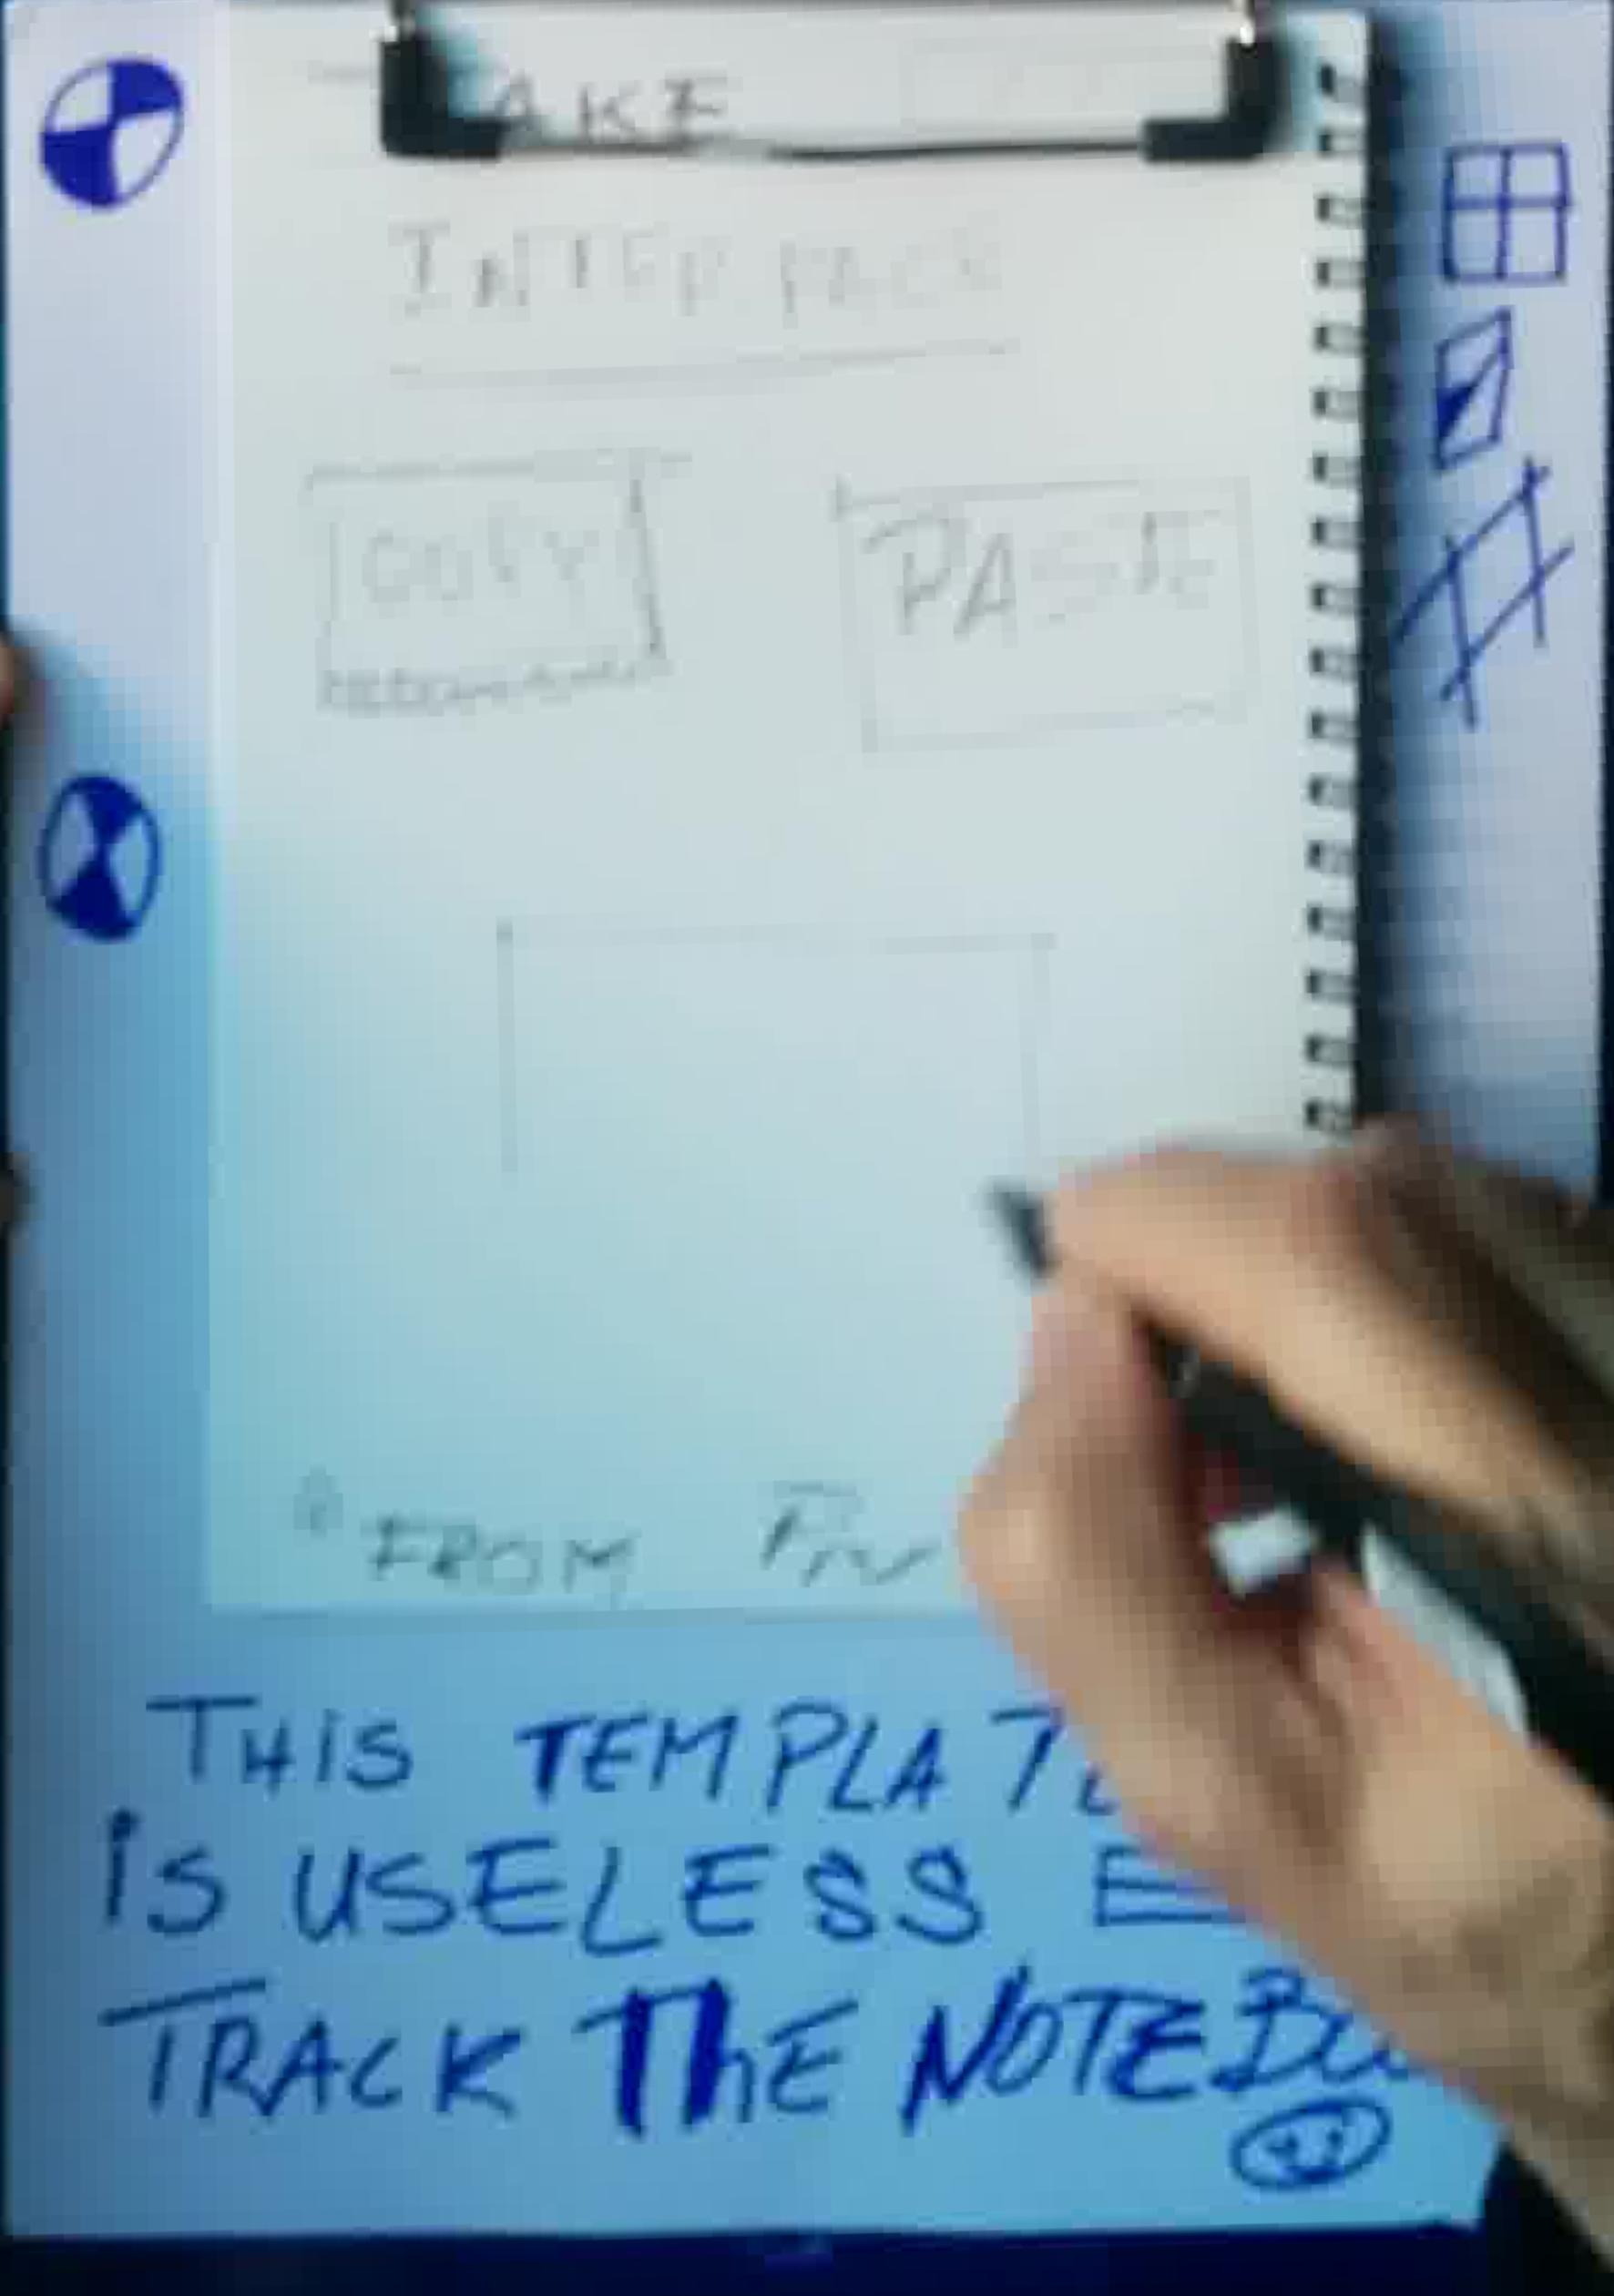 AKE
INTERFACE
COPY PASTE
FROM
THIS TEMPLATE
IS USELESS
TRACK ThE NOTEB